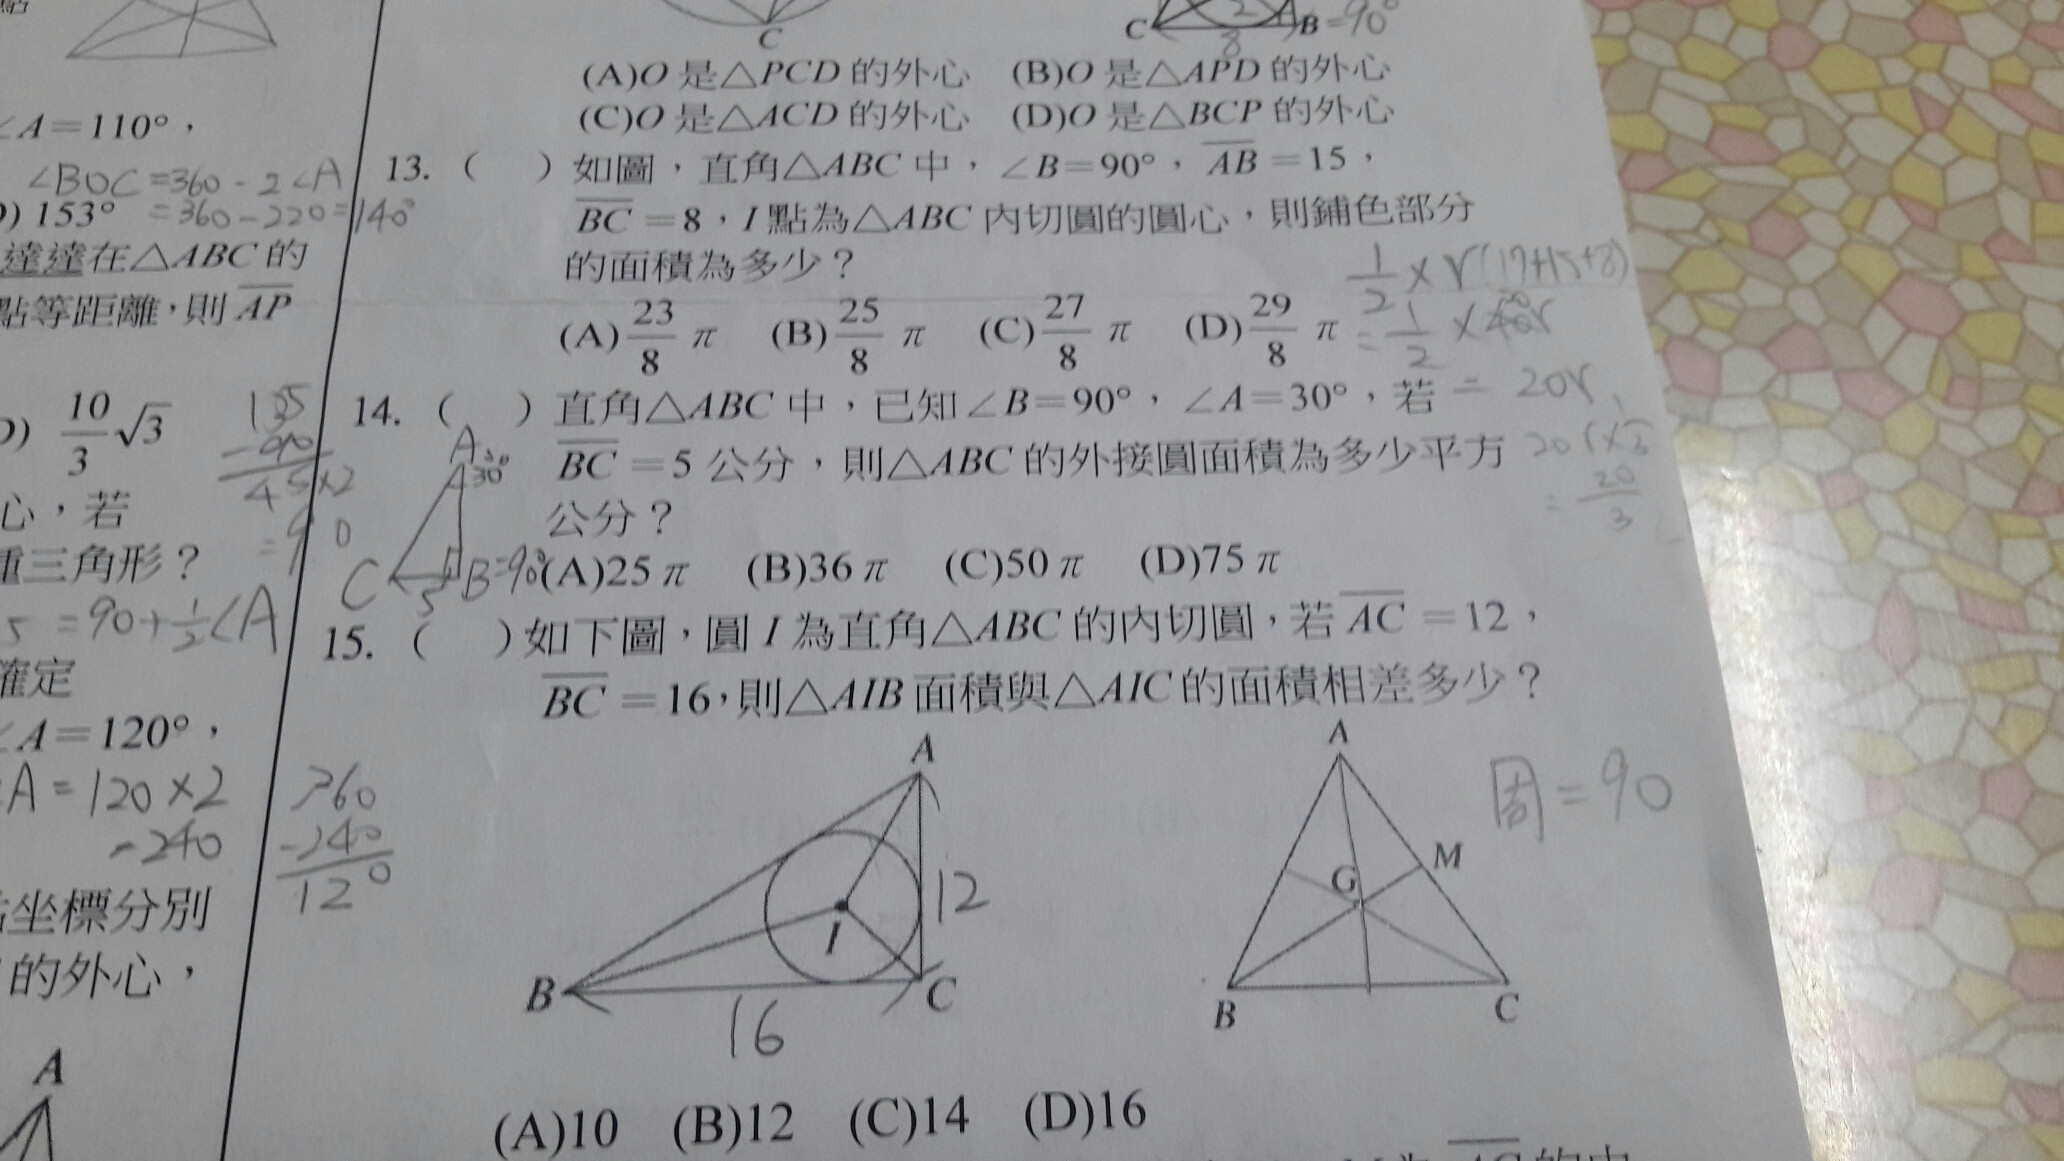 ∠A＝110°，
∠BOC=360-2∠A
153° =360-220=140°
達達在△ABC的
點等距離，則AP
10/3 √3
135
-90
45×2
=90
心，若
三角形？
5 =90+1/2∠A
確定
∠A＝120°，
A=120×2
=240
360
-240
120
坐標分別
的外心，
A
C
C 8 2 B=90°
(A)O 是△PCD 的外心 (B)O 是△APD 的外心
(C)O 是△ACD 的外心 (D)O 是△BCP 的外心
13. ( ) 如圖，直角△ABC 中，∠B＝90°，AB＝15，
BC＝8，I 點為△ABC 內切圓的圓心，則鋪色部分
的面積為多少？
(A) 23/8 π (B) 25/8 π (C) 27/8 π (D) 29/8 π
1/2×r(17+15+8)
=1/2×40r
=20r
20
=20/3
14. ( ) 直角△ABC 中，已知∠B＝90°，∠A＝30°，若
BC＝5 公分，則△ABC 的外接圓面積為多少平方
公分？
A 30°
C 5 B=90°
(A)25π (B)36π (C)50π (D)75π
15. ( ) 如下圖，圓 I 為直角△ABC 的內切圓，若 AC＝12，
BC＝16，則△AIB 面積與△AIC 的面積相差多少？
A
I
12
B
C
16
A
M
G
B
C
周=90
(A)10 (B)12 (C)14 (D)16